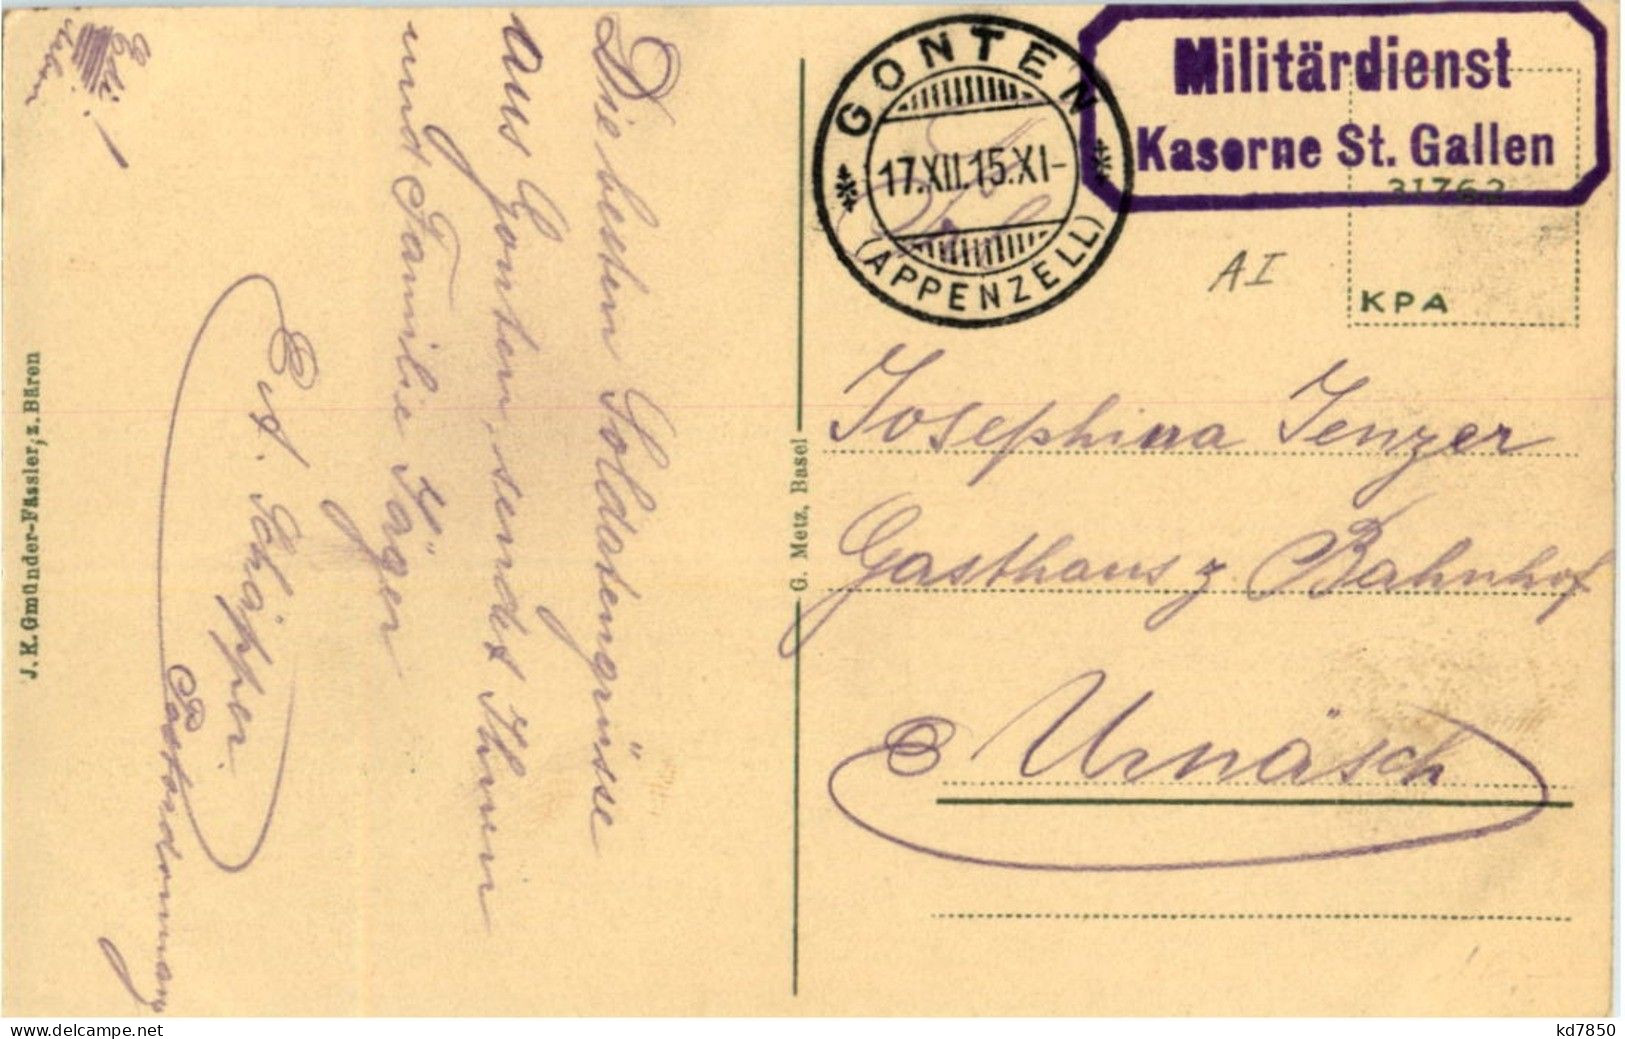 Militärdienst
Kaserne St. Gallen
GONTEN
17.XII.15.XI-
(APPENZELL)
31763
AI
KPA
Josephina Jenzer
Gasthaus z. Bahnhof
Urnäsch
G. Metz, Basel
Die besten Soldatengrüsse
Aus Gonten, sendet Ihnen
und Familie Jäger
E. A. Schäpper
J. K. Gmünder-Fässler, z. Bären
delcampe.net
kd7850